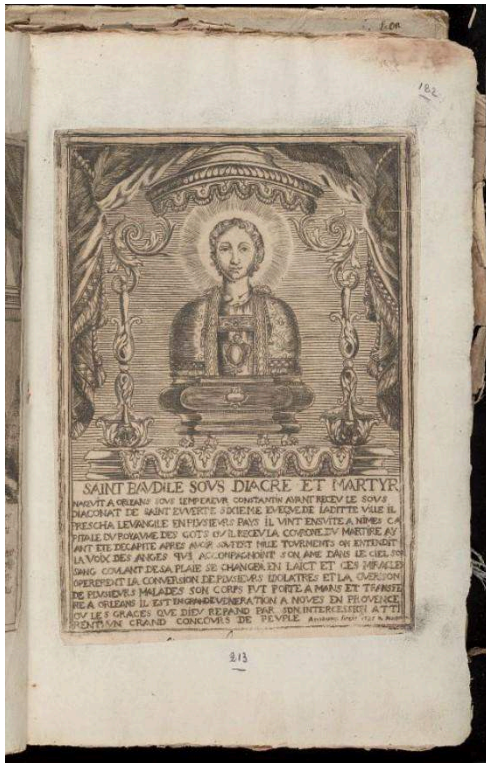 182
SAINT BAVDILE SOVS DIACRE ET MARTYR
NAQVIT A ORLEANS SOVS L'EMPEREVR CONSTANTIN AYANT RECEV LE SOVS
DIACONAT DE SAINT EVVERTE SIXIEME EVEQVE DE LADITTE VILLE IL
PRESCHA LEVANGILE EN PLVSIEVRS PAYS IL VINT ENSVITE A NIMES CA
PITALE DV ROYAVME DES GOTS OV IL RECEV LA COVRONE DV MARTIRE AY
ANT ETE DECAPITE APRES AVOIR SOVFERT MILLE TOVRMENTS ON ENTENDIT
LA VOIX DES ANGES QVI ACCOMPAGNOINT SON AME DANS LE CIEL SON
SANG COVLANT DE SA PLAIE SE CHANGEA EN LAICT ET CES MIRACLES
OPERERENT LA CONVERSION DE PLVSIEVRS IDOLATRES ET LA GVERISON
DE PLVSIEVRS MALADES SON CORPS FVT PORTE A MANIS ET TRANSFE
RE A ORLEANS IL EST EN GRANDE VENERATION A NOVES EN PROVENCE
OV LES GRACES QVE DIEV REPAND PAR SON INTERCESSION ATTI
RENT VN GRAND CONCOVRS DE PEVPLE
213